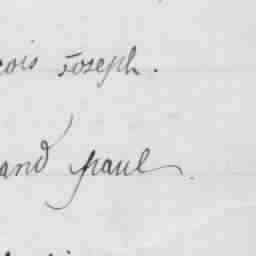 çois Joseph.
and Paul.